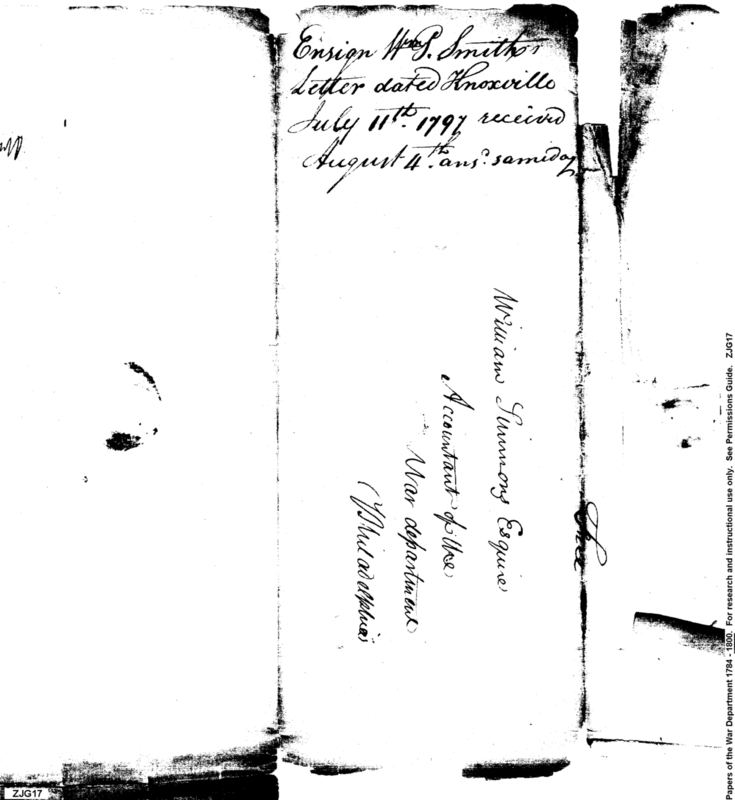 Ensign Wm P. Smith's
Letter dated Knoxville
July 11th. 1797 received
August 4th. ansd. sameday
William Simmons Esquire
Accountant of the
War department
Philadelphia
Free
ZJG17
Papers of the War Department 1784 - 1800. For research and instructional use only. See Permissions Guide. ZJG17